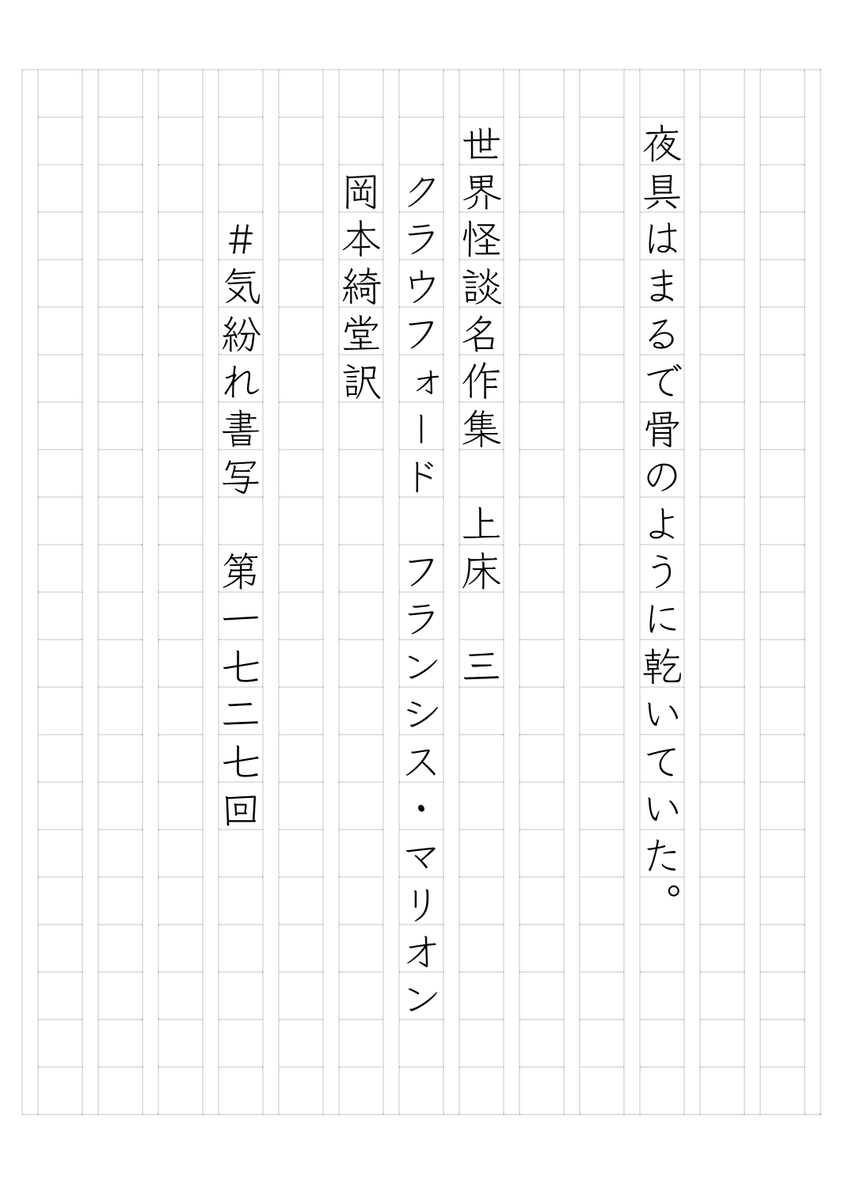 夜具はまるで骨のように乾いていた。
世界怪談名作集　上床　三
クラウフォード　フランシス・マリオン
岡本綺堂訳
＃気紛れ書写　第一七二七回